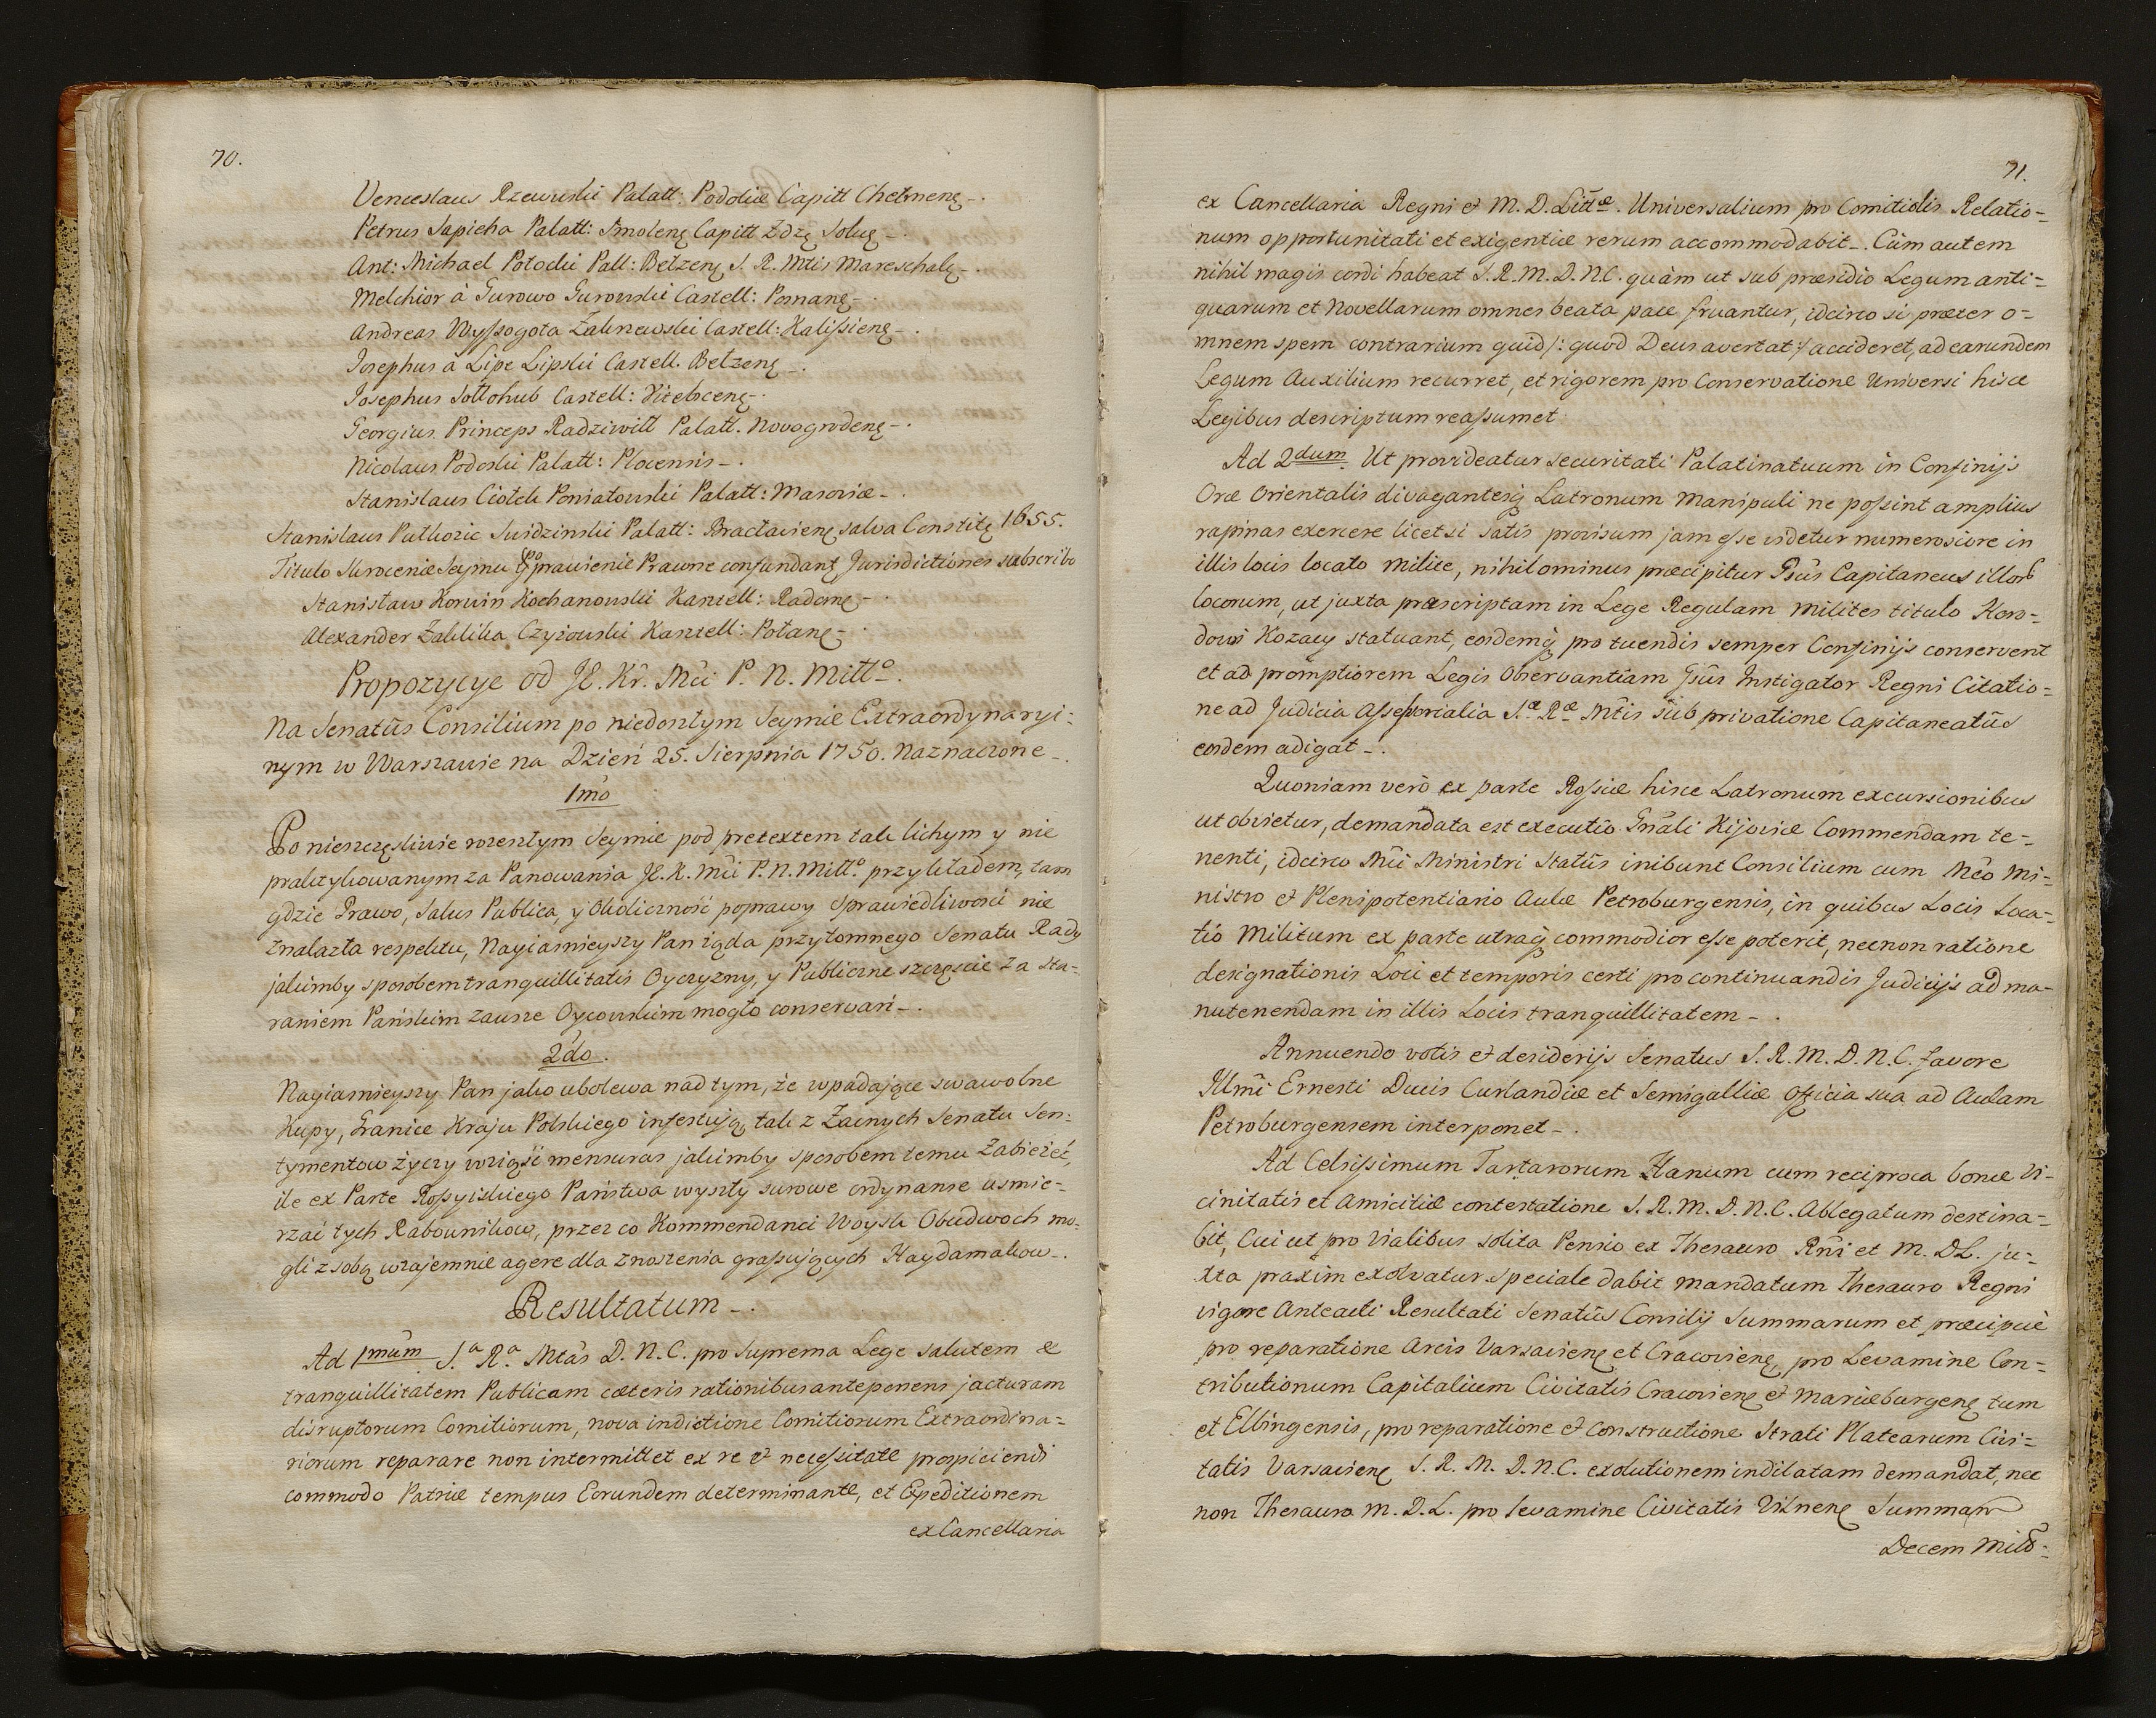 70.
Venceslaus Rzewuski Palatt: Podoliæ Capitt Chełmenę -.
Petrus Sapieha Palatt: Smolenę Capitt Żdżę Soluę -.
Ant: Michael Potocki Pall: Bełzenę S. R. Mtis Mareschalę -.
Melchior à Gurowo Gurowski Castell: Posnanę -.
Andreas Wyssogota Zakrzewski Castell: Kalissienę -.
Josephus à Lipe Lipski Castell. Bełzenę -.
Josephus Sołłohub Castell: Vitebscenę -.
Georgius Princeps Radziwiłł Palatt. Novogrodenę -.
Nicolaus Podoski Palatt: Plocensis -.
Stanislaus Ciołek Poniatowski Palatt: Masoviæ -.
Stanislaus Puthozic Swidzinski Palatt: Bracłavienę salva Constitę 1655.
Titulo Skrocenie Seymu Poprawienie Prawne confundant Jurisdictiones subscribo
Stanisław Korwin Kochanowski Kasztell: Radomę -.
Alexander Zaklika Czyżowski Kasztell: Połanę -.
Propozycye od JE. Kr. Mći P. N. Miłło.
Na Senatûs Consilium po niedoszłym Seymie Extraordynaryi=
nym w Warszawie na Dzień 25. Sierpnia 1750. Naznaczone -.
1mo
Po nieszczęsliwie zeszłym Seymie pod pretextem tak lichym y nie
praktykowanym za Panowania JE. K. Mći P. N. Miłło. przykładem, tam
gdzie Prawo, Salus Publica, y Okoliczność poprawy Sprawiedliwości nie
znalazła respektu, Nayiasnieyszy Pan żąda przytomnego Senatu Rady
jakimby sposobem tranquillitatis Oyczyzny, y Publiczne szczęscie za sta=
raniem Pańskim zawsze Oycowskim mogło conservari -.
2do.
Nayiasnieyszy Pan jako ubolewa nad tym, że wpadające swawolne
Kupy, Granice Kraju Polskiego infestują, tak z Zacnych Senatu Sen=
tymentow życzy wziąść mensuras jakimby sposobem temu Zabieżeć,
ile ex Parte Rossyiskiego Państwa wyszły surowe ordynanse usmie=
rzać tych Rabownikow, przez co Kommendanci Woysk Obudwoch mo=
gli z sobą wzajemnie agere dla znoszenia grassujących Haydamakow -.
Resultatum -.
Ad 1mum S.a R.a Mtas D. N. C. pro Suprema Lege salutem &
tranquillitatem Publicam cæteris rationibus anteponens jacturam
disruptorum Comitiorum, nova indictione Comitiorum Extraordina=
riorum reparare non intermittet ex re & necessitate prospiciendi
commodo Patriæ tempus Eorundem determinante, et Expeditionem
ex Cancellaria
71.
ex Cancellaria Regni et M. D. Littæ. Universalium pro Comitiolis Relatio=
num opportunitati et exigentiæ rerum accommodabit -. Cùm autem
nihil magis cordi habeat S. R. M. D. N. C. quàm ut sub præsidio Legum anti=
quarum et Novellarum omnes beata pace fruantur, idcirco si præter o=
mnem spem contrarium quid /: quod Deus avertat :/ accideret, ad earundem
Legum Auxilium recurret, et rigorem pro Conservatione Universi hisce
Legibus descriptum reassumet
Ad 2dum. Ut provideatur securitati Palatinatuum in Confinijs
Oræ Orientalis divagantesq; Latronum Manipuli ne possint amplius
rapinas exercere licetsi satis provisum jam esse videtur numerosiore in
illis locis locato Milite, nihilominus præcipitur Gsûs Capitaneus illorū
locorum, ut juxta præscriptam in Lege Regulam Milites titulo Horo=
dowi Kozacy statuant, eosdemq; pro tuendis semper Confinijs conservent
et ad promptiorem Legis Observantiam Gsûs Instigator Regni Citatio=
ne ad Judicia Assessorialia S.æ R.æ Mtis sub privatione Capitaneatûs
eosdem adigat -.
Quoniam verò ex parte Rossiæ hisce Latronum excursionibus
ut obvietur, demandata est executio Gnāli Kijoviæ Commendam te=
nenti, idcirco Mci Ministri Statûs inibunt Consilium cum Mco Mi=
nistro & Plenipotentiario Aulæ Petroburgensis, in quibus Locis Loca=
tio Militum ex parte utraq; commodior esse poterit, necnon ratione
designationis Loci et temporis certi pro continuandis Judicijs ad ma=
nutenendam in illis Locis tranquillitatem -.
Annuendo votis & desiderijs Senatus S. R. M. D. N. C. favore
Illmi Ernesti Ducis Curlandiæ et Semigalliæ Officia sua ad Aulam
Petroburgensem interponet -.
Ad Celsissimum Tartarorum Hanum cum reciproca bonæ Vi=
cinitatis et Amicitiæ contestatione S. R. M. D. N. C. Ablegatum destina=
bit, Cui ut pro Vialibus solita Pensio ex Thesauro Rni et M. D L. ju=
xta praxim exolvatur speciale dabit mandatum Thesauro Regni
vigore Anteacti Resultati Senatûs Consilij Summarum et præcipuè
pro reparatione Arcis Varsavienę et Cracovienę, pro Levamine Con=
tributionum Capitalium Civitatis Cracovienę & Mariæburgenę tum
et Elbingensis, pro reparatione & Constructione Strati Platearum Civi=
tatis Varsavienę S. R. M. D. N. C. exolutionem indilatam demandat, nec
non Thesauro M. D. L. pro levamine Civitatis Vilnenę Summam
Decem Mill=